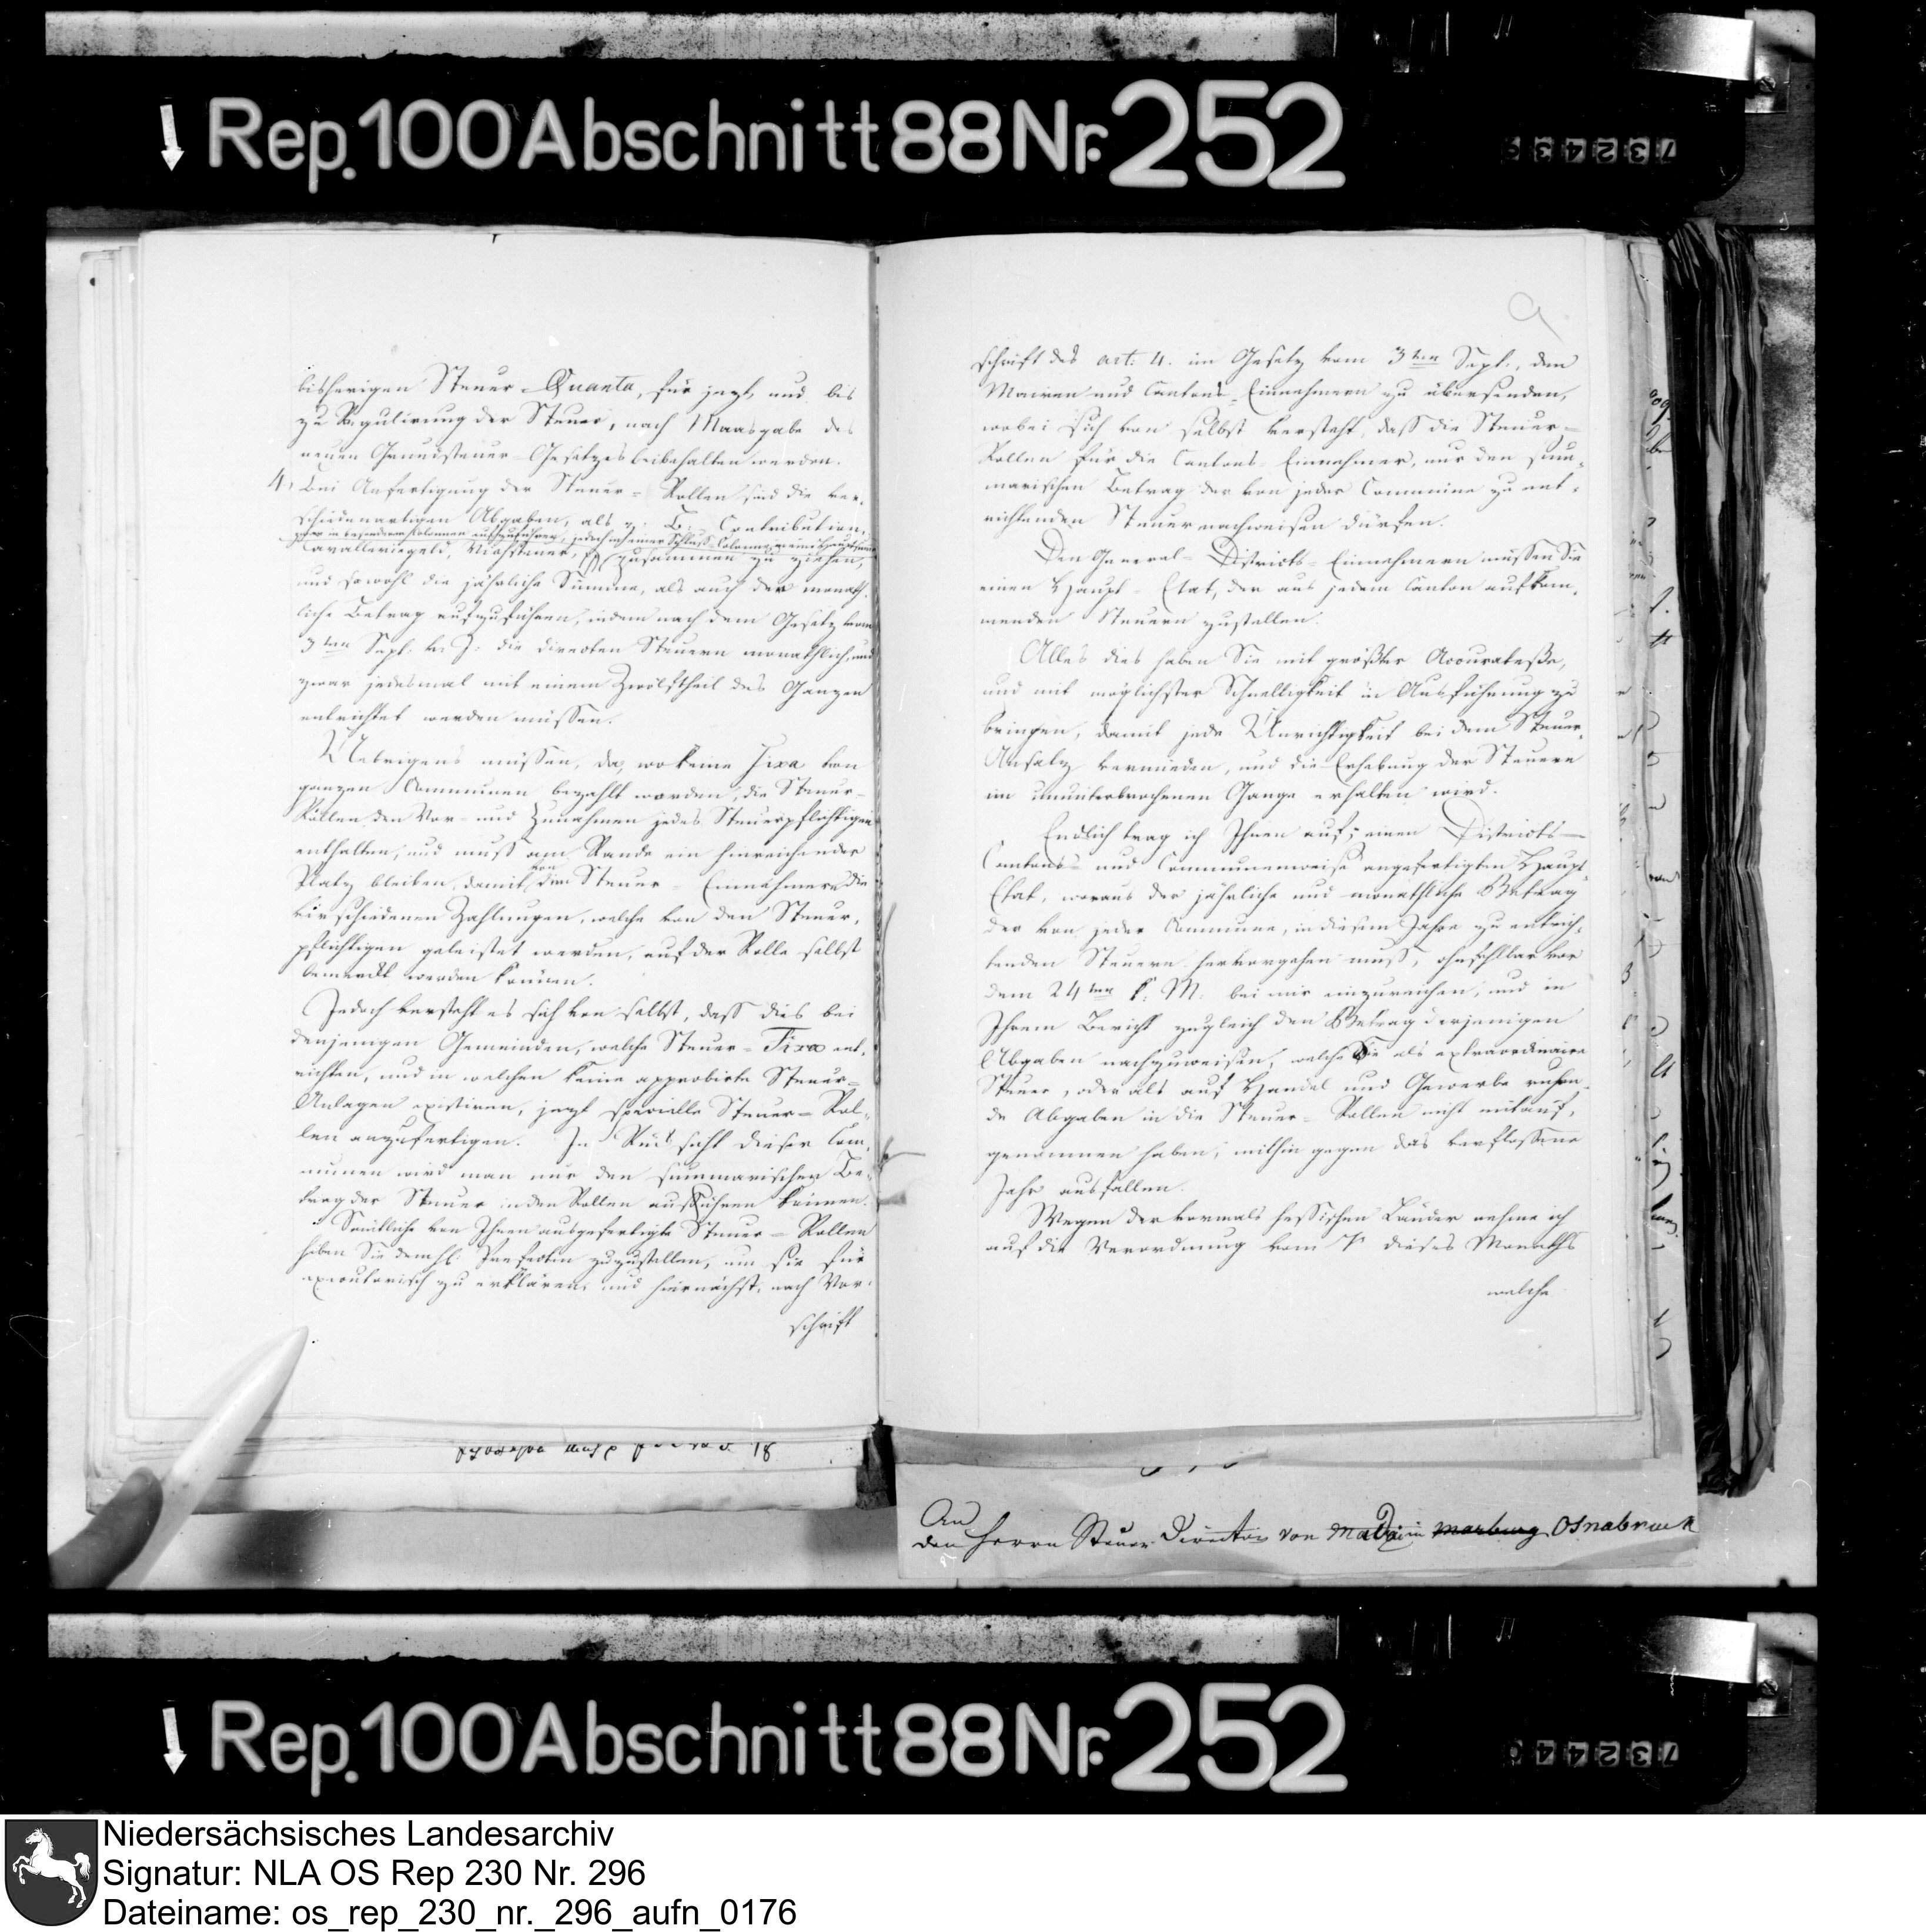 Rep. 100 Abschnitt 88 Nr. 252
732439
bisherigen Steuer-Quanta, für jezt, und bis
zu Regulirung der Steuer, nach Maasgabe des
neuen Grundsteuer-Gesetzes beibehalten werden.
4, Bei Anfertigung der Steuer-Rollen sind die ver-
schiedenartigen Abgaben, als z. B. Contribution,
zwar in besondern Colonnen aufzuführen, jedoch in einer Schluß-Colonne in eine Hauptsumme
Cavalleriegeld, Viehsteuer, pp zusammen zu ziehen,
und sowohl die jährliche Summe, als auch der monath-
liche Betrag aufzuführen, indem nach dem Gesetz vom
3ten Sept. v. J. die directen Steuern monathlich, und
zwar jedesmal mit einem Zwölftheil des Ganzen
entrichtet werden müssen.
Uebrigens müssen, da, wo keine Fixa von
ganzen Communen bezahlt worden, die Steuer-
Rollen den Vor- und Zunahmen jedes Steuerpflichtigen
enthalten, und muß am Rande ein hinreichender
Platz bleiben, damit von den Steuer-Einnehmern die
verschiedenen Zahlungen, welche von den Steuer-
pflichtigen geleistet werden, auf der Rolle selbst
bemerkt werden können.
Jedoch versteht es sich von selbst, daß dies bei
denjenigen Gemeinden, welche Steuer-Fixa ent-
richten, und in welchen keine approbirte Steuer-
Anlagen existiren, jezt specielle Steuer-Rol-
len anzufertigen. In Rücksicht dieser Com-
munen wird man nur den summarischen Be-
trag der Steuer in den Rollen aufführen können.
Sämtliche von Ihnen ausgefertigte Steuer-Rollen
haben Sie dem H. Praefecten zuzustellen, um sie für
executorisch zu erklären, und hiernächst, nach Vor-
schrift
9
schrift des art. 4. im Gesetz vom 3ten Sept., den
Mairen und Cantons-Einnehmern zu übersenden,
wobei sich von selbst versteht, daß die Steuer-
Rollen für die Cantons-Einnehmer, nur den sum-
marischen Betrag der von jeder Commune zu ent-
richtenden Steuer nachweisen dürfen.
Den General-Districts-Einnehmern müssen Sie
einen Haupt-Etat, der aus jedem Canton aufkom-
menden Steuern zustellen.
Alles dies haben Sie mit größter Accuratesse,
und mit möglichster Schnelligkeit in Ausführung zu
bringen, damit jede Unrichtigkeit bei dem Steuer-
Ansatz vermieden, und die Erhebung der Steuern
im ununterbrochenen Gange erhalten wird.
Endlich trag ich Ihnen auf, einen Districts-
Cantons- und Communenweise angefertigten Haupt-
Etat, woraus der jährliche und monathliche Betrag
der von jeder Commune, in diesem Jahre zu entrich-
tenden Steuern hervorgehen muß, ohnfehlbar vor
dem 24ten k. M. bei mir einzureichen, und in
Ihrem Bericht zugleich den Betrag derjenigen
Abgaben nachzuweisen, welche Sie als extraordinaire
Steuer, oder als auf Handel und Gewerbe ruhen-
de Abgaben in die Steuer-Rollen nicht mitauf-
genommen haben, mithin gegen das verflossene
Jahr ausfallen.
Wegen der vormals hessischen Länder nehme ich
auf die Verordnung vom 7 dieses Monaths
welche
An
den Herrn Steuer Director von Madai in Marburg Osnabrueck
Rep. 100 Abschnitt 88 Nr. 252
732440
Niedersächsisches Landesarchiv
Signatur: NLA OS Rep 230 Nr. 296
Dateiname: os_rep_230_nr._296_aufn_0176